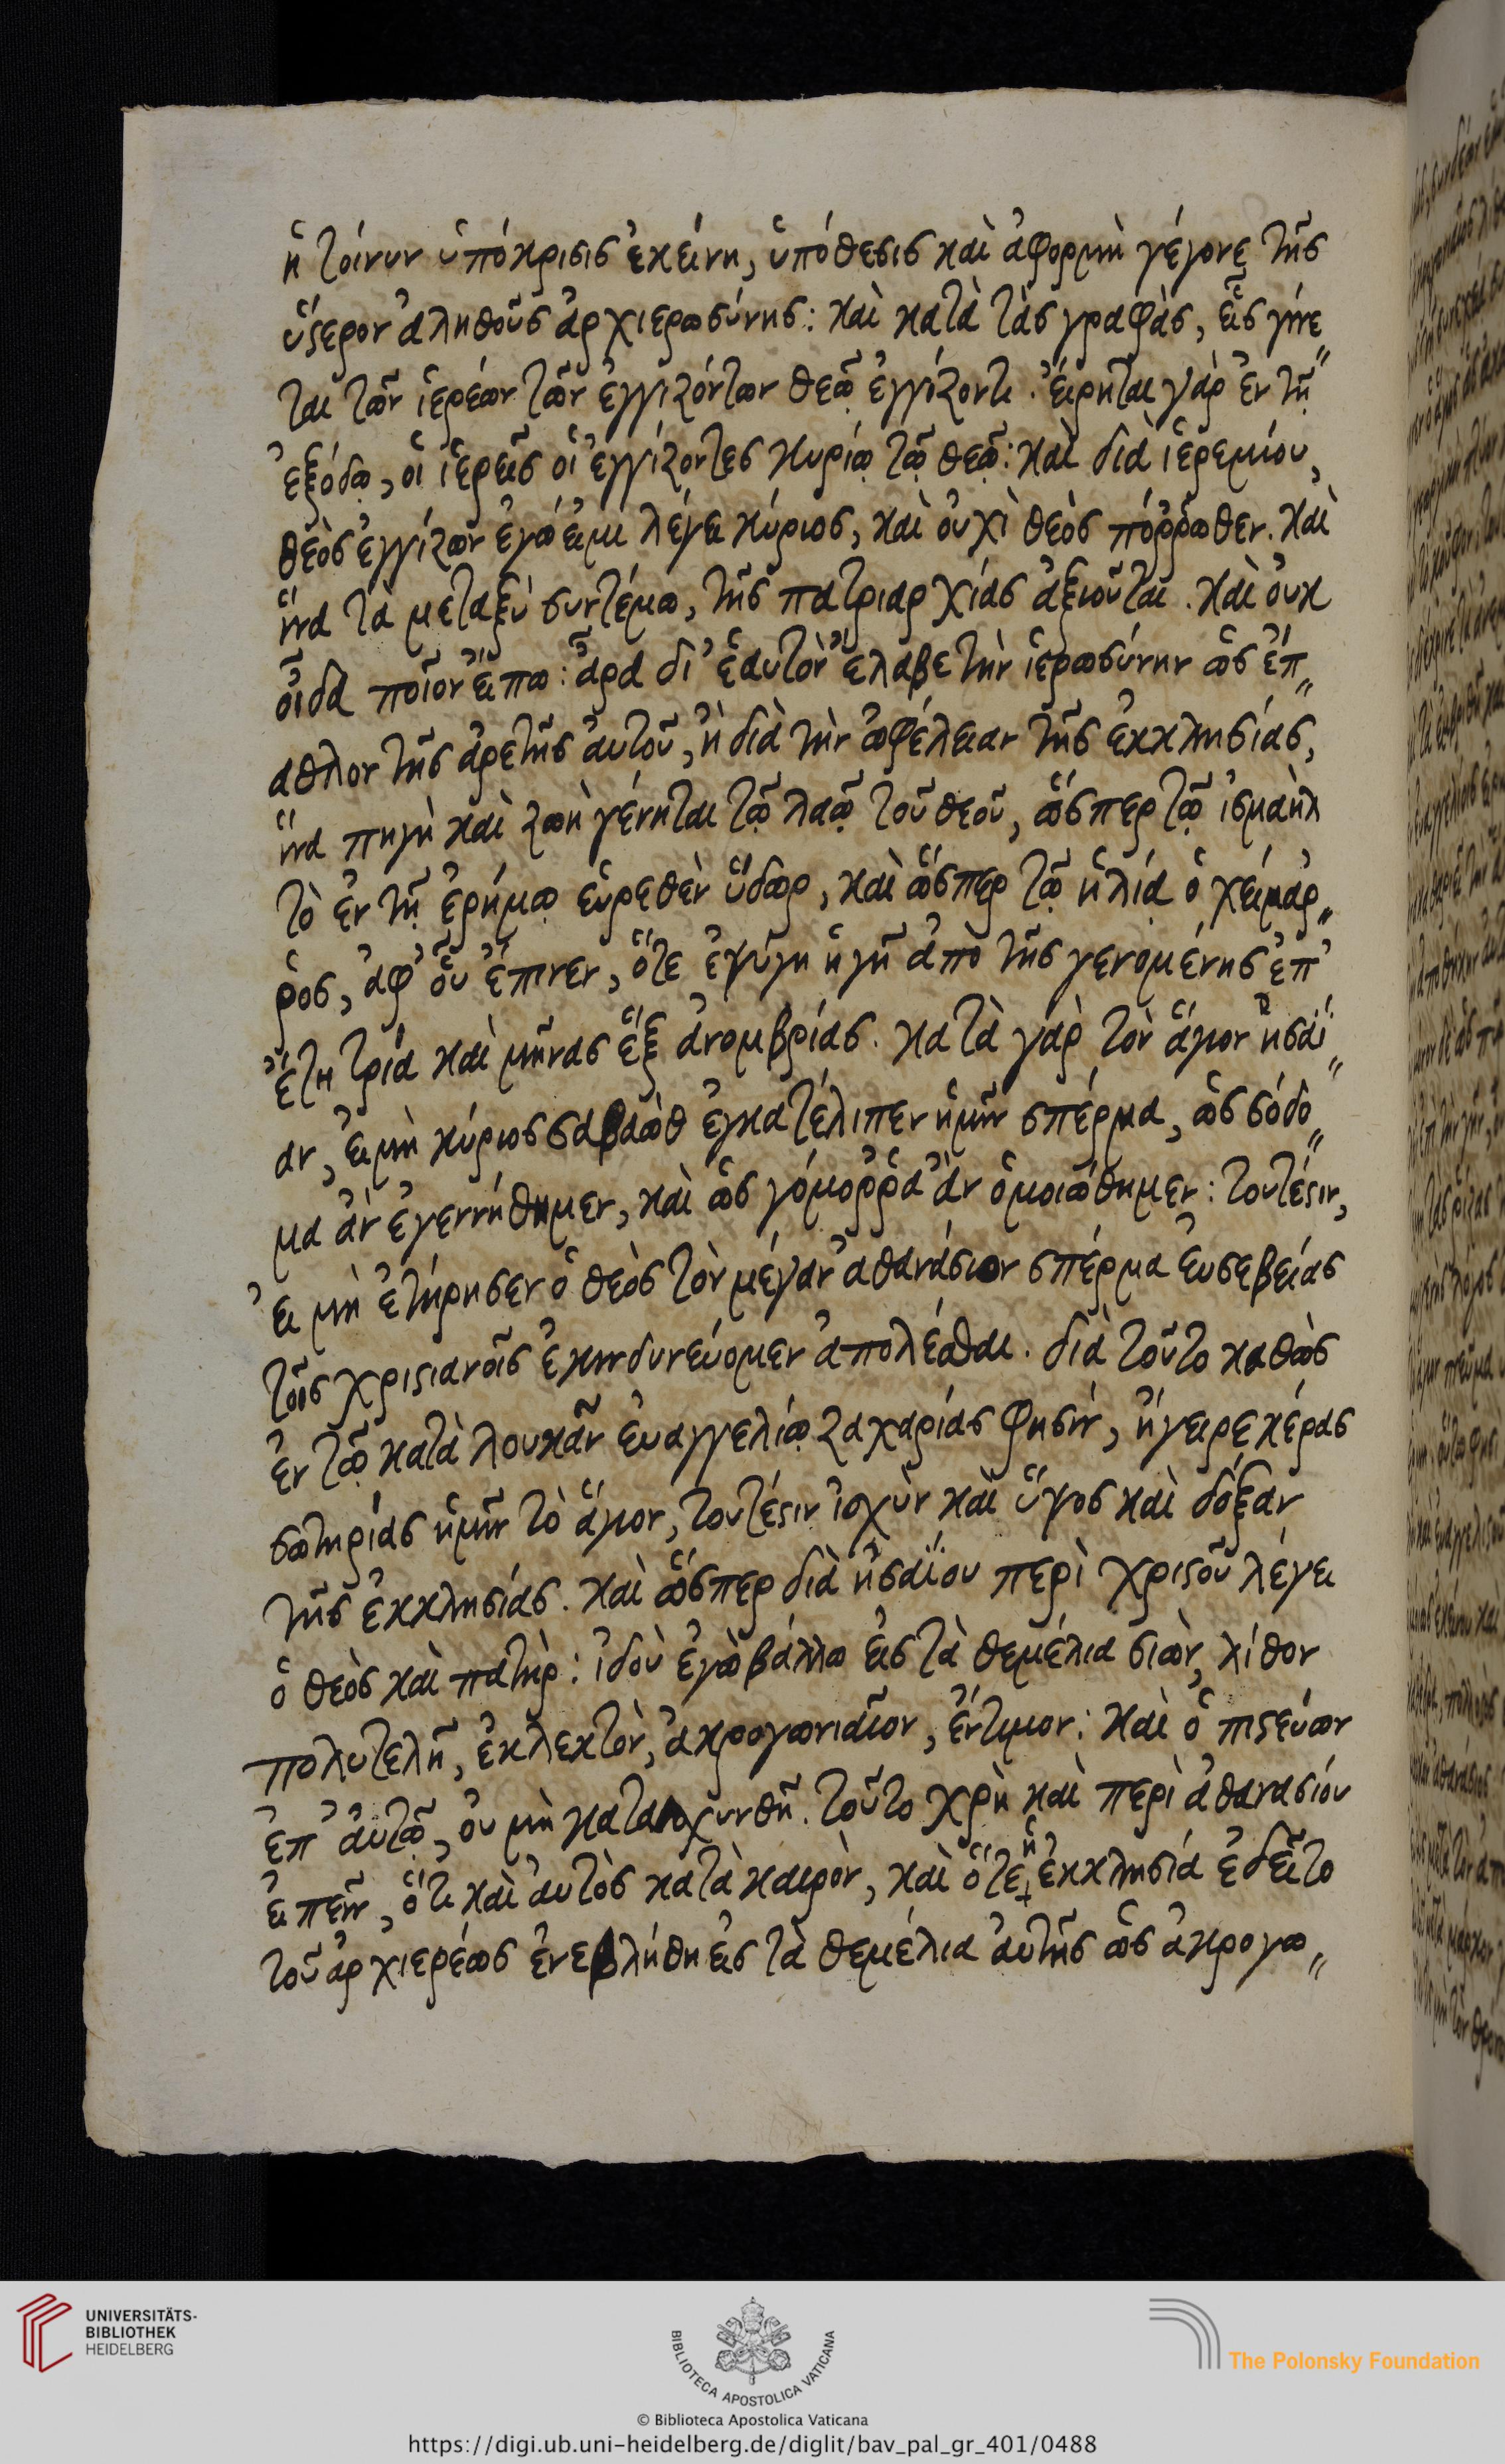 ἡ τοίνυν ὑπόκρισις ἐκείνη, ὑπόθεσις καὶ ἀφορμὴ γέγονε τῆς
ὕστερον ἀληθοῦς ἀρχιερωσύνης: καὶ κατὰ τὰς γραφὰς, εἷς γίνε„
ται τῶν ἱερέων τῶν ἐγγιζόντων θεῷ ἐγγίζοντι. εἴρηται γὰρ ἐν τῇ
ἐξόδῳ, οἱ ἱερεῖς οἱ ἐγγίζοντες κυρίῳ τῷ θεῷ: καὶ διὰ ἱερεμίου,
θεὸς ἐγγίζων ἐγώ εἰμι λέγει κύριος, καὶ οὐχὶ θεὸς πόῤῥωθεν. καὶ
ἵνα τὰ μεταξὺ συντέμω, τῆς πατριαρχίας ἀξιοῦται. καὶ οὐκ
οἶδα ποῖον εἴπω: ἆρα δι' ἑαυτὸν ἔλαβε τὴν ἱερωσύνην ὡς ἔπ„
αθλον τῆς ἀρετῆς αὐτοῦ, ἢ διὰ τὴν ὠφέλειαν τῆς ἐκκλησίας,
ἵνα πηγὴ καὶ ζωὴ γένηται τῷ λαῷ τοῦ θεοῦ, ὥσπερ τῷ ἰσμαὴλ
τὸ ἐν τῇ ἐρήμῳ εὑρεθὲν ὕδωρ, καὶ ὥσπερ τῷ ἡλίᾳ ὁ χείμαρ„
ῥος, ἀφ' οὗ ἔπινεν, ὅτε ἐψύγη ἡ γῆ ἀπὸ τῆς γενομένης ἐπ'
ἔτη τρία καὶ μῆνας ἕξ ἀνομβρίας. κατὰ γὰρ τὸν ἅγιον ἡσαΐ„
αν, εἰ μὴ κύριος σαβαὼθ ἐγκατέλιπεν ἡμῖν σπέρμα, ὡς σόδο„
μα ἂν ἐγεννήθημεν, καὶ ὡς γόμοῤῥα ἂν ὁμοιώθημεν: τουτέστιν,
εἰ μὴ ἐτήρησεν ὁ θεὸς τὸν μέγαν ἀθανάσιον σπέρμα εὐσεβείας
τοῖς χριστιανοῖς ἐκινδυνεύομεν ἀπολέσθαι. διὰ τοῦτο καθὼς
ἐν τῷ κατὰ λουκᾶν εὐαγγελίῳ ζαχαρίας φησὶν, ἤγειρε κέρας
σωτηρίας ἡμῖν τὸ ἅγιον, τουτέστιν ἰσχὺν καὶ ὕψος καὶ δόξαν
τῆς ἐκκλησίας. καὶ ὥσπερ διὰ ἡσαΐου περὶ χριστοῦ λέγει
ὁ θεὸς καὶ πατὴρ: ἰδοὺ ἐγὼ βάλλω εἰς τὰ θεμέλια σιὼν, λίθον
πολυτελῆ, ἐκλεκτὸν, ἀκρογωνιαῖον, ἔντιμον: καὶ ὁ πιστεύων
ἐπ' αὐτῷ, οὐ μὴ καταισχυνθῇ. τοῦτο χρὴ καὶ περὶ ἀθανασίου
εἰπεῖν, ὅτι καὶ αὐτὸς κατὰ καιρὸν, καὶ ὅτε ἡ ἐκκλησία ἐδεῖτο
τοῦ ἀρχιερέως ἐνεβλήθη εἰς τὰ θεμέλια αὐτῆς ὡς ἀκρογω„
UNIVERSITÄTS-
BIBLIOTHEK
HEIDELBERG
BIBLIOTECA APOSTOLICA VATICANA
The Polonsky Foundation
© Biblioteca Apostolica Vaticana
https://digi.ub.uni-heidelberg.de/diglit/bav_pal_gr_401/0488